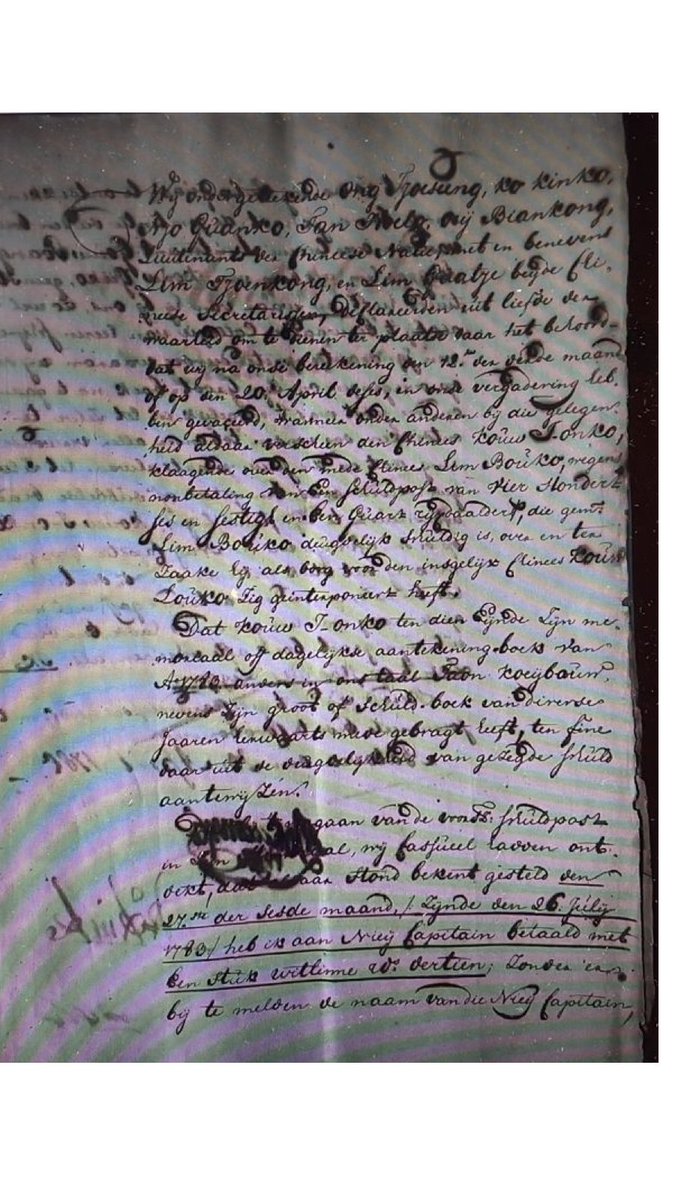 Wij ondergeteekende Ong Tjoeseng, Ko Kinko,
Njo Quanko, Tan Hoelo, Oeij Biankong,
Luitenants der Chineese Natie, met en benevens
Lim Tjoenkong, en Lim Guatje beyde Chi-
neese Secretarissen, declareerden uit liefde der
waarheid om te dienen ter plaatse daar het behoord
dat wij na onse bereekening den 12.de der derde maand
of op den 20. April deses, in onse vergadering heb-
ben gevaceerd, wanneer onder anderen bij die gelegen-
heid aldaar verscheen den Chinees Kouw Tonko,
klaagende over den mede Chinees Lim Bouko, wegens
nonbetaling van Een schuldpost van Vier Hondert
ses en sestigh en een Quart rijxdaalders, die gem:
Lim Bouko deugdelijk schuldig is, over en ter
zaake hij als borg voor den insgelijx Chinees Kouw
Louko zig geinterponeert heeft.
Dat Kouw Tonko ten dien Eijnde zijn me-
moriaal off dagelijkse aantekening-boek van
A:o 1783 anders in ons taal
nevens zijn groot of schuld-boek van diverse
Jaaren herwaarts mede gebragt heeft, ten fine
daar uit de deugdelijkheid van gezegde schuld
aantewijzen.
gaan van de voorsz: schuldpost
in zijn wij Casueel hadden ont-
dekt, dat aldaar stond bekent gesteld den
27.sten der sesde maand, / Zynde den 26. Julij
1783 / heb ik aan Nieij Capitain betaald met
Een stuk witlinne rd.s dertien; zonder
bij te melden de naam van die Nieij Capitain,